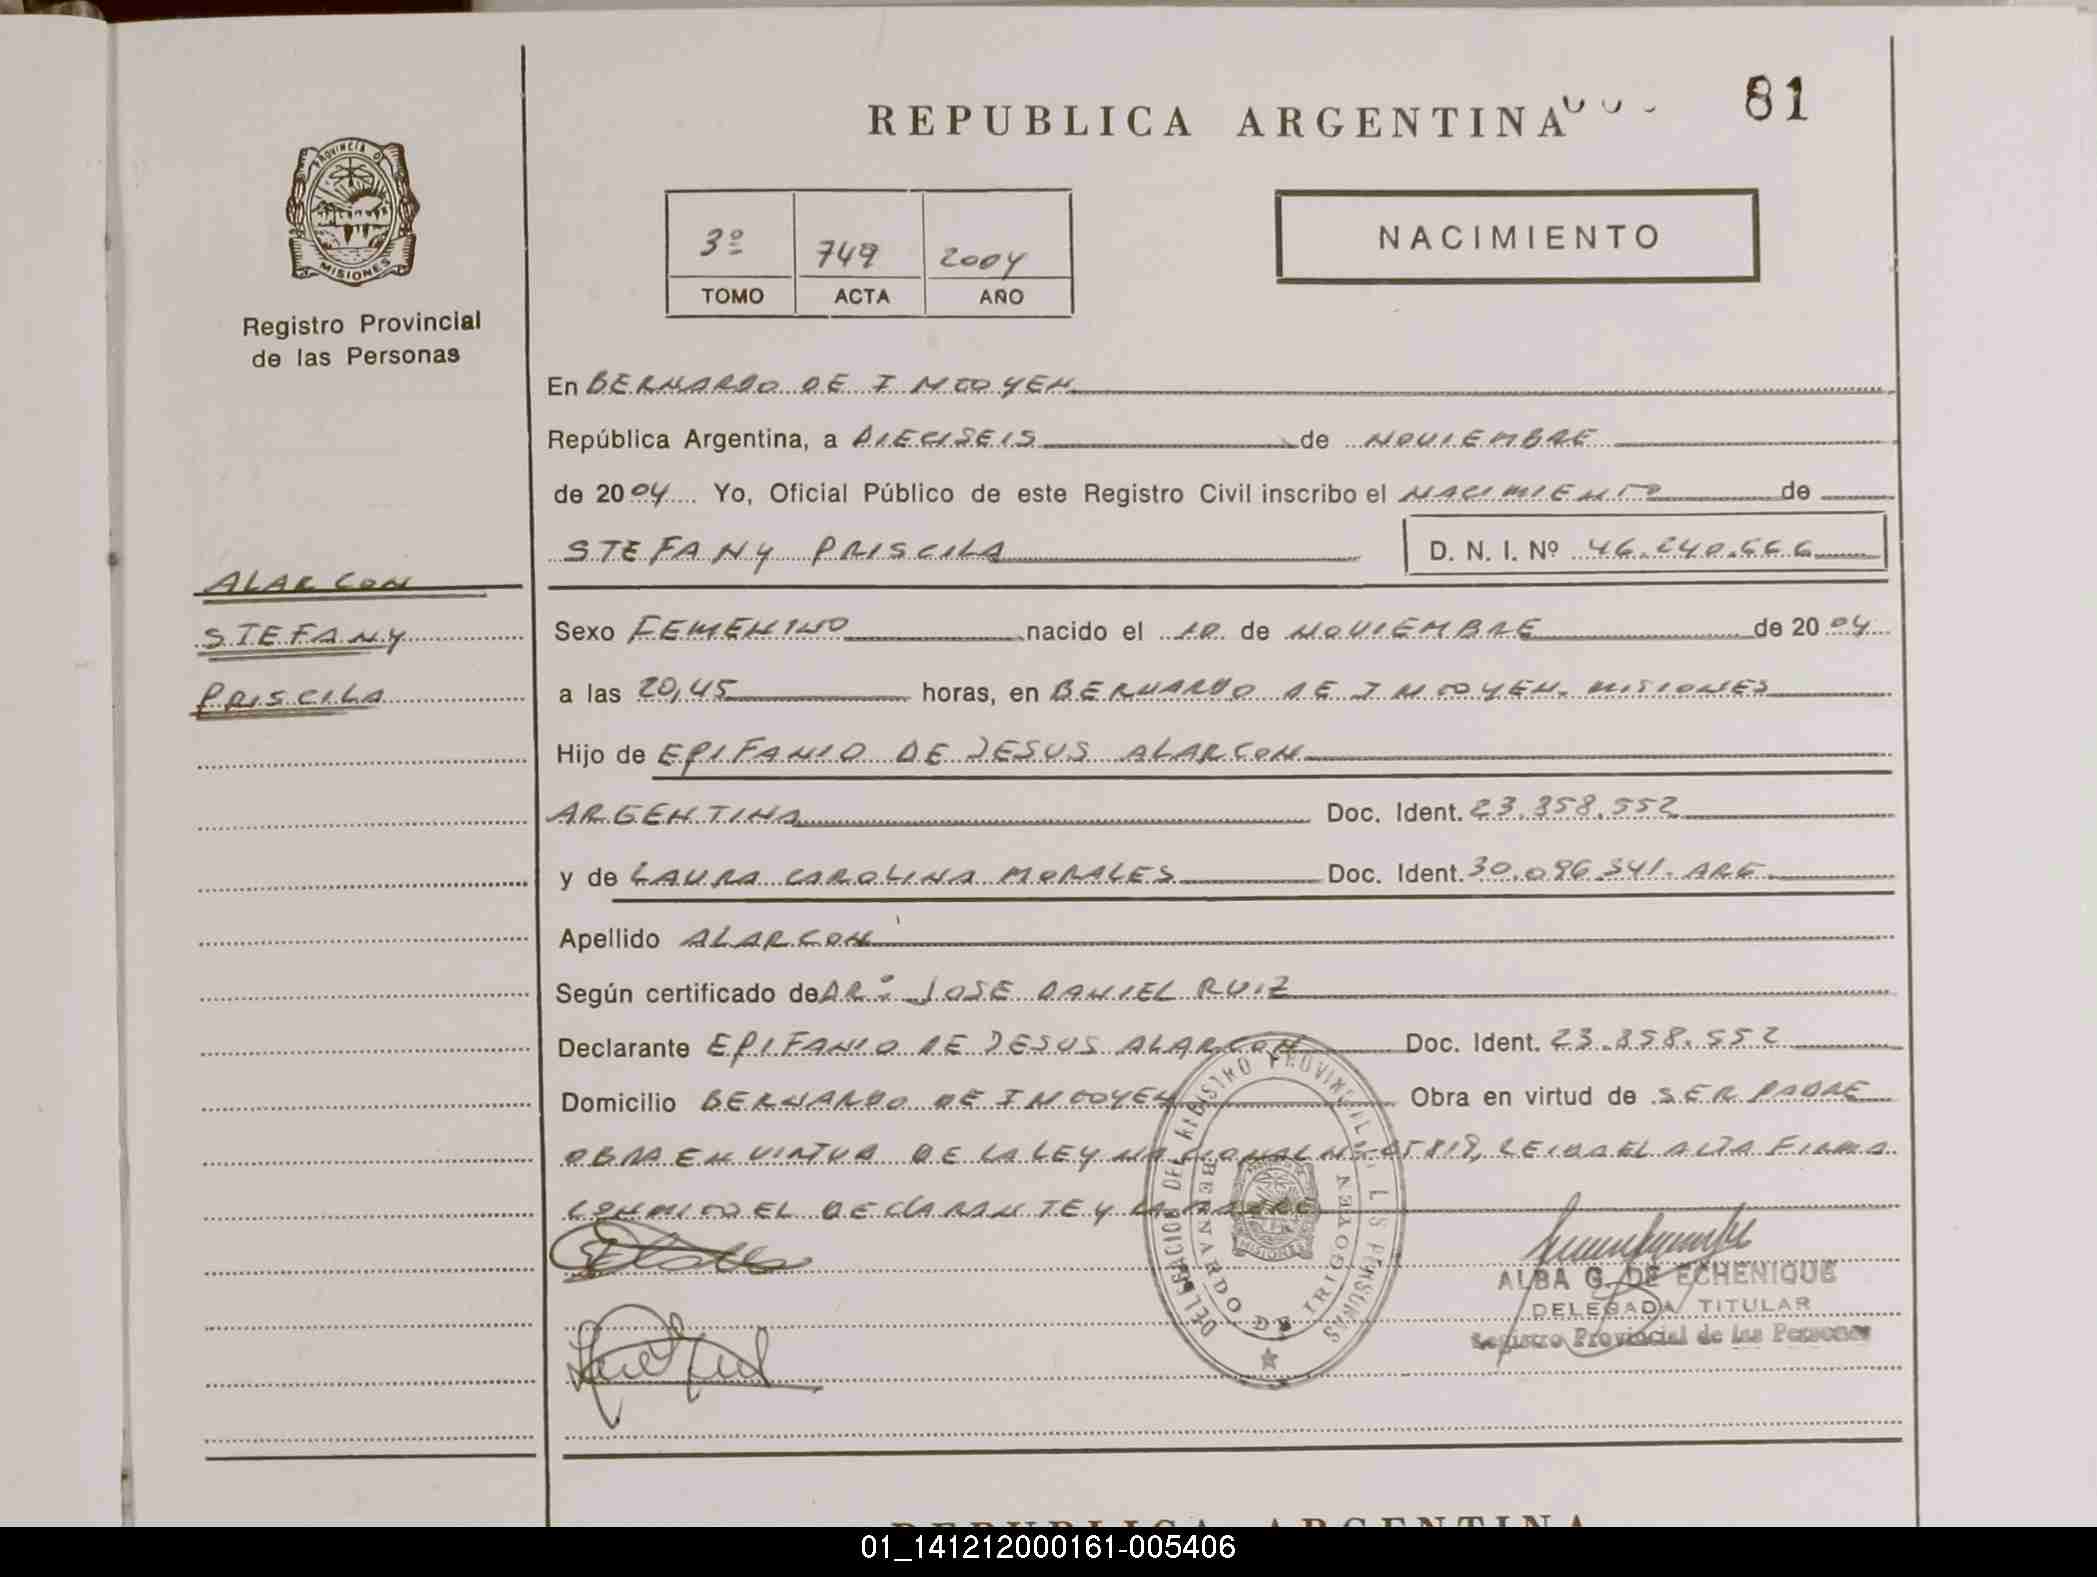 REPUBLICA ARGENTINA
81
PROVINCIA D
MISIONES
Registro Provincial
de las Personas
3º 749 2004
TOMO ACTA AÑO
NACIMIENTO
En BERNARDO DE IRIGOYEN
República Argentina, a DIECISEIS de NOVIEMBRE
de 2004 Yo, Oficial Público de este Registro Civil inscribo el NACIMIENTO de
STEFANY PRISCILA D. N. I. Nº 46.240.666
ALARCON
STEFANY
PRISCILA
Sexo FEMENINO nacido el 10 de NOVIEMBRE de 2004
a las 20,45 horas, en BERNARDO DE IRIGOYEN. MISIONES
Hijo de EPIFANIO DE JESUS ALARCON
ARGENTINA Doc. Ident. 23.858.552
y de LAURA CAROLINA MORALES Doc. Ident. 30.096.341. ARG
Apellido ALARCON
Según certificado de DR: JOSE DANIEL RUIZ
Declarante EPIFANIO DE JESUS ALARCON Doc. Ident. 23.858.552
Domicilio BERNARDO DE IRIGOYEN Obra en virtud de SER PADRE
OBRA EN VIRTUD DE LA LEY NACIONAL Nº 25819, LEIDA EL ACTA FIRMA
CONMIGO EL DECLARANTE Y LA MADRE
DELEGACION DEL REGISTRO PROVINCIAL DE LAS PERSONAS
BERNARDO DE IRIGOYEN
MISIONES
ALBA G. DE ECHENIQUE
DELEGADA TITULAR
Registro Provincial de las Personas
REPUBLICA ARGENTINA
01_141212000161-005406